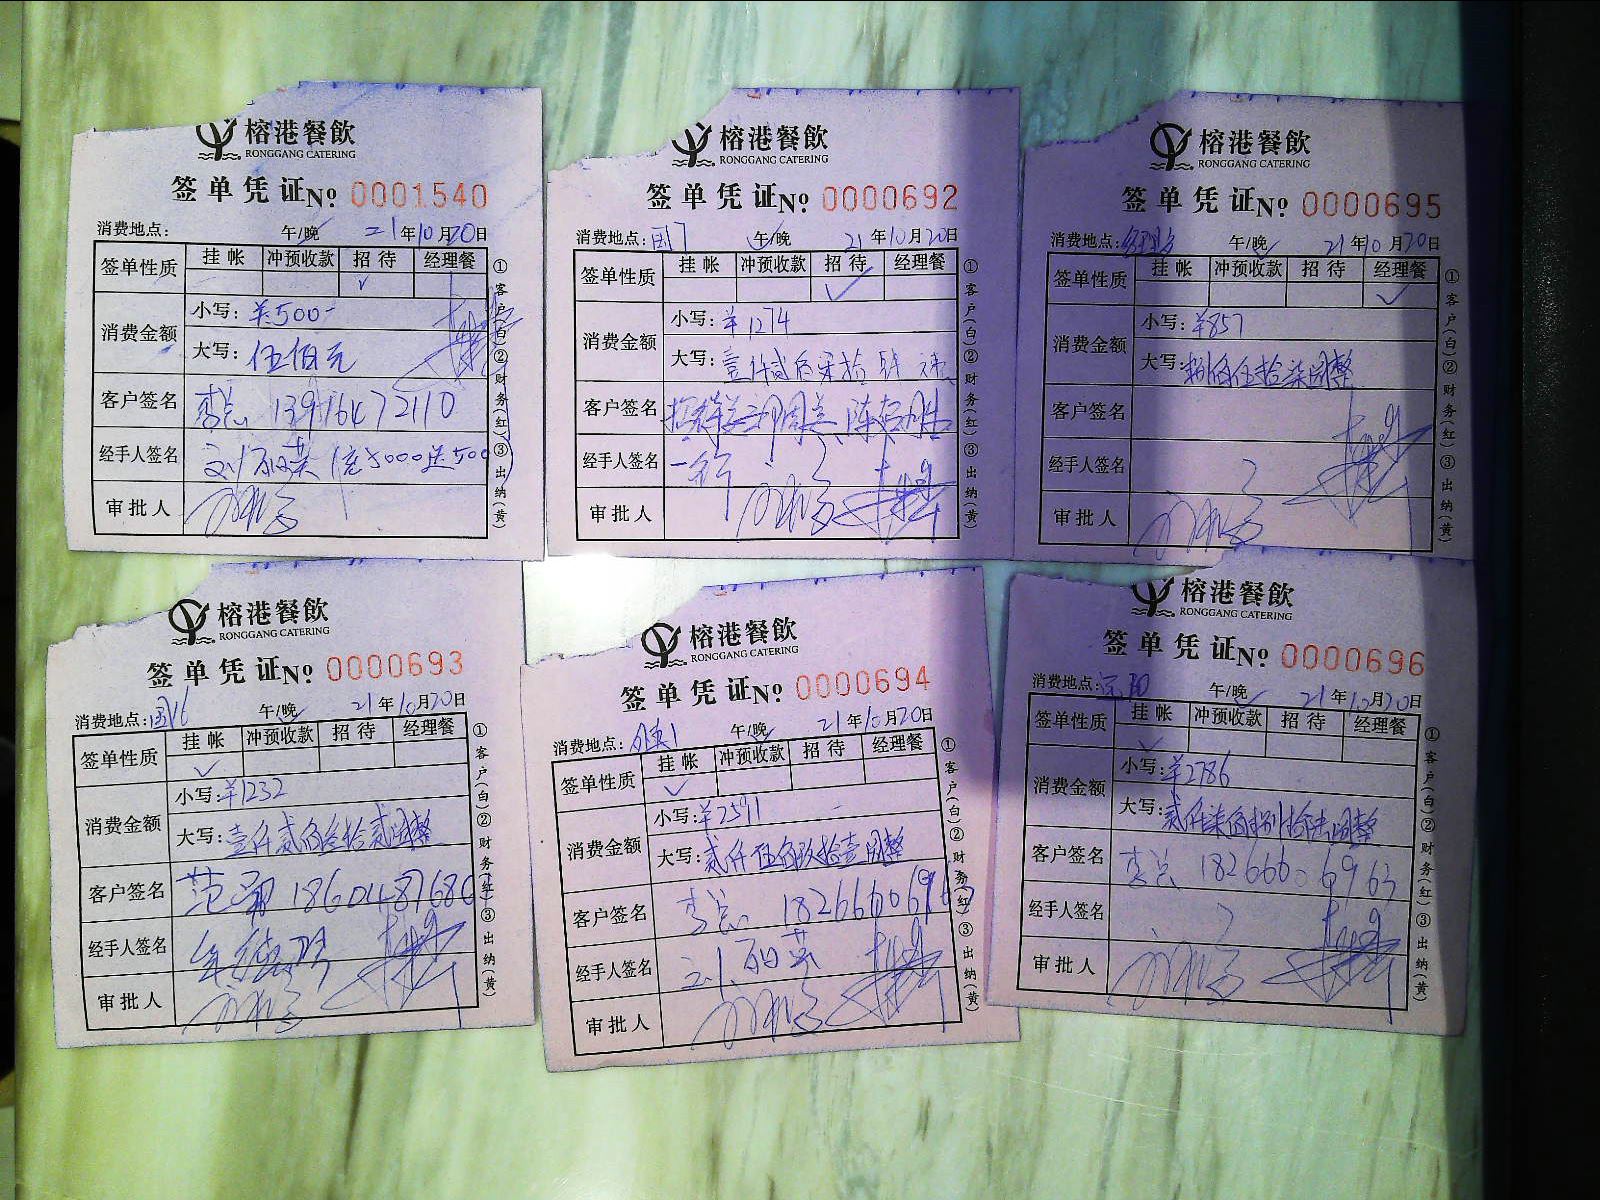 榕港餐飲
RONGGANG CATERING
签单凭证No 0001540
消费地点: 午/晚 21年10月20日
签单性质 挂帐 冲预收款 招待 经理餐
消费金额 小写: ¥500-
大写: 伍佰元
客户签名 李总 13976472110
经手人签名 充5000送500
审批人
①客户(白)②财务(红)③出纳(黄)
榕港餐飲
RONGGANG CATERING
签单凭证No 0000692
消费地点: 午/晚 21年10月20日
签单性质 挂帐 冲预收款 招待 经理餐
消费金额 小写: ¥1274
大写: 壹仟贰佰柒拾肆
客户签名
经手人签名
审批人
①客户(白)②财务(红)③出纳(黄)
榕港餐飲
RONGGANG CATERING
签单凭证No 0000695
消费地点: 午/晚 21年10月20日
签单性质 挂帐 冲预收款 招待 经理餐
消费金额 小写: ¥857
大写: 捌佰伍拾柒圆整
客户签名
经手人签名
审批人
①客户(白)②财务(红)③出纳(黄)
榕港餐飲
RONGGANG CATERING
签单凭证No 0000693
消费地点: 午/晚 21年10月20日
签单性质 挂帐 冲预收款 招待 经理餐
消费金额 小写: ¥1232
大写: 壹仟贰佰叁拾贰圆整
客户签名
经手人签名
审批人
①客户(白)②财务(红)③出纳(黄)
榕港餐飲
RONGGANG CATERING
签单凭证No 0000694
消费地点: 午/晚 21年10月20日
签单性质 挂帐 冲预收款 招待 经理餐
消费金额 小写: ¥2591
大写: 贰仟伍佰玖拾壹圆整
客户签名 李总
经手人签名
审批人
①客户(白)②财务(红)③出纳(黄)
榕港餐飲
RONGGANG CATERING
签单凭证No 0000696
消费地点: 午/晚 21年10月20日
签单性质 挂帐 冲预收款 招待 经理餐
消费金额 小写: ¥2786
大写: 贰仟柒佰捌拾陆圆整
客户签名 李总 18266606963
经手人签名
审批人
①客户(白)②财务(红)③出纳(黄)